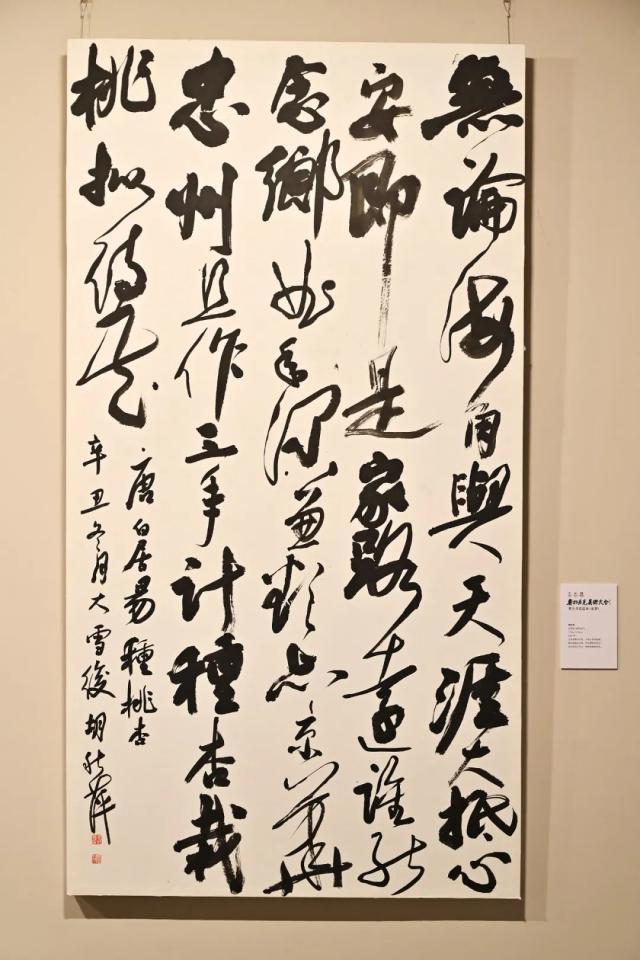 無論海角與天涯大抵心
安即是家路遠誰能
念鄉曲年深兼欲忘京華
忠州且作三年計種杏栽
桃擬待花
唐白居易種桃杏
辛丑冬月大雪後胡秋萍